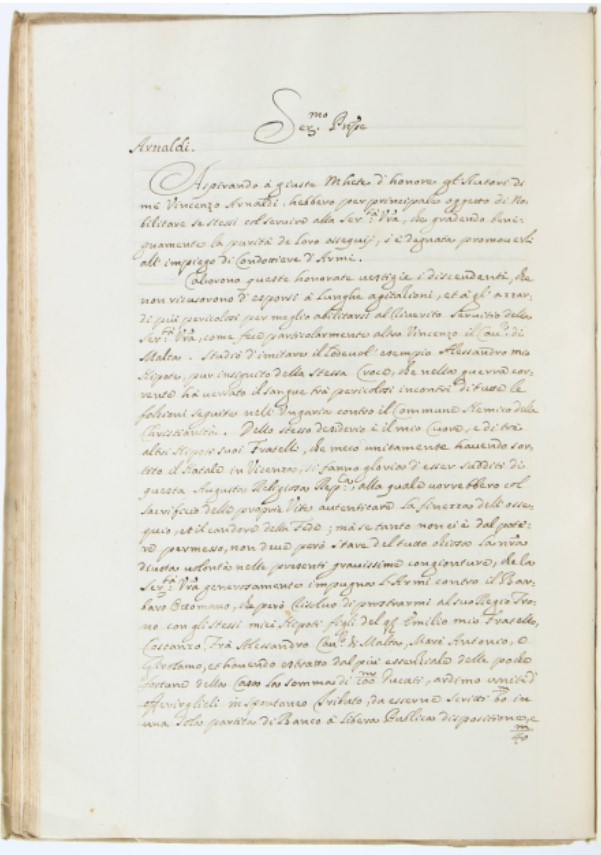 Ser.mo Pnpe
Arnaldi.
Aspirando à giuste Mhete d'honore gl'Autori di
me Vincenzo Arnaldi, hebbero per principale oggetto di No-
bilitare se stessi col servire alla Ser.tà Vrã, che gradendo beni-
gnamente la purità de loro ossequij, s'è degnata promoverli
all'impiego di Condottiere d'Armi.
Caborono queste honorate vestigie i discendenti, che
non ricusorono d'esporsi à lunghe agitationi, et à gl'azzar-
di più pericolosi per meglio abilitarsi al riverito servitio della
Ser.tà Vrã, come fece particolarmente altro Vincenzo il Cau.r di
Malta. Studiò d'imitare il lodevol'esempio Alessandro mio
Nipote, pur insignito della stessa Croce, che nella guerra cor-
rente hà versato il sangue trà pericolosi incontri di tutte le
fattioni seguite nell'Ungaria contro il Commune Nemico della
Christianità. Dello stesso desiderio è il mio Cuore, e di trè
altri Nipoti suoi Fratelli, che meco unitamente havendo sor-
tito il Natale in Vicenza, si fanno gloria d'esser sudditi di
questa Augusta Religiosa Rep.ca, alla quale vorrebbero col
sacrificio delle proprie Vite autenticare la finezza dell'osse-
quio, et il candore della Fede; mà se tanto non ci è dal pote-
re permesso, non deve però stare del tutto otiosa la nrã
divota volontà nelle presenti gravissime congionture, che la
Ser.tà Vrã generosamente impugna l'Armi contro il Bar-
baro Ottomano, che però risoluo di prostrarmi al suo Regio Tro-
no con gli stessi miei Nipoti figli del q. Emilio mio Fratello,
Costanzo, Frà Alessandro Cau.r di Malta, Marc'Antonio, e
Girolamo, et havendo estratto dal più essentiale delle poche
fortune della Casa la somma di Ducati, ardimo uniti d'
offerirglieli in spontaneo Tributo, da esserne scritti 60 in
una sola partita di Banco à libera Publica dispositione, e
m/40